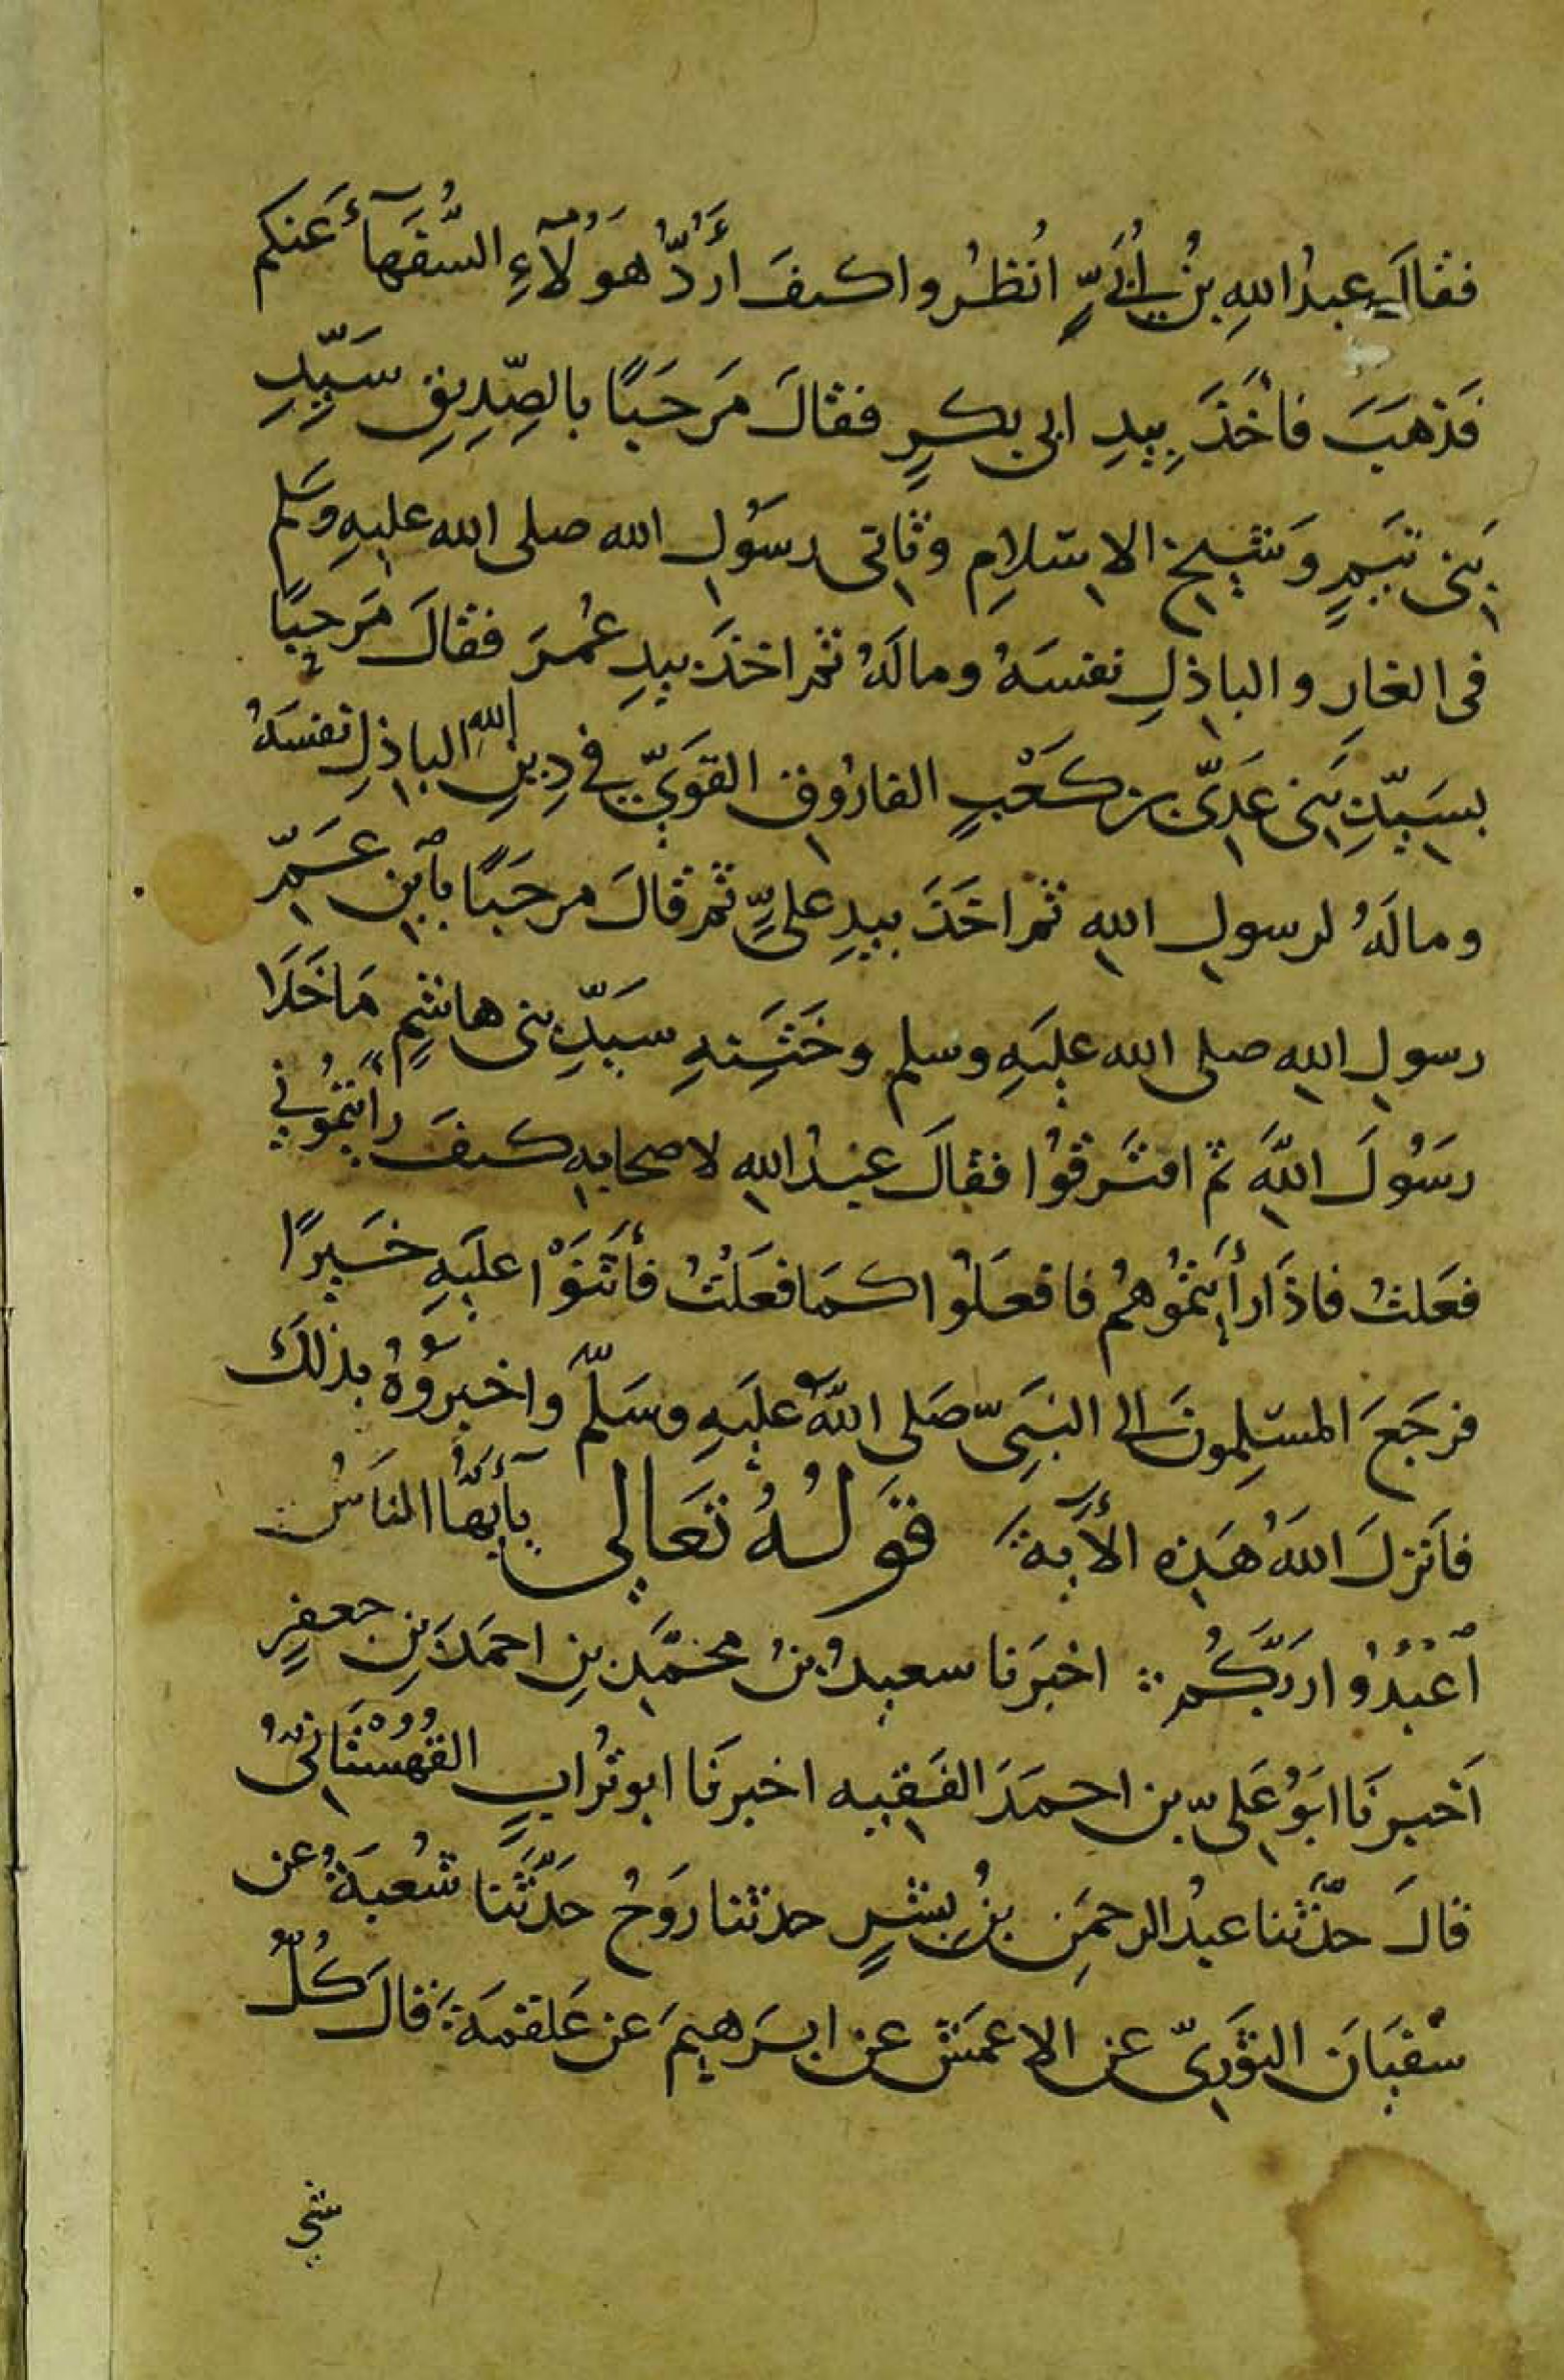 فقالَ عبدُ اللهِ بنُ أُبَيٍّ انُظرُوا كيفَ أَرُدُّ هَؤُلَآءِ السُّفَهآءَ عَنكم
فَذهَبَ فأخَذَ بِيدِ ابى بكرٍ فقالَ مَرحَبًا بالصِّدِيقِ سَيِّدِ
بَنى تَيمٍ وَشَيخِ الاِسْلامِ وثانى رسَوُلِ الله صلى الله عليهِ وسَلم
فى الغارِ والباذلِ نفسَهُ ومالَهُ ثم اخذَ بيدِ عُمرَ فقالَ مَرحبًا
بسَيّدِ بَنى عَدِىّ بن كَعْبٍ الفارُوقِ القوَيّ في دِينِ اللهِ الباذلِ نفسَهُ
ومالَهُ لرسولِ اللهِ ثم اخَذَ بيدِ علىٍّ ثم قالَ مرحَبًا بٱبنِ عَمِّ
رسولِ اللهِ صلى الله عليَهِ وسلم وخَتَنِهِ سَيّدِ بنى هاشمٍ مَاخَلَا
رسَوُلَ اللهَ ثم افتَرقُوا فقالَ عبدُ اللهِ لاصحابهِ كيفَ رأيتمُوُني
فعَلتُ فاذَا رأَيتمُوُهمُ فافعَلوُا كمَا فعَلتُ فأَثنَوْا عليَهِ خَيرًا
فرجَعَ المسْلِمونَ الى النبَىِّ صَلى اللهُ عليَهِ وسَلّمَ واخبروُهُ بذلكَ
فأَنزلَ اللهُ هَذِهِ الأَيةَ قوَلُهُ تعَالي يآأَيُّهَا الناَسُ
ٱعْبُدُوْا رَبَّكُم اخبرَنا سعيدُ بنُ محمّدِ بنِ احمدَ بنِ جعفرٍ
اَخبرنَا ابَوُ علىّ بن احمدَ الفقيه اخبرنَا ابو تُرابٍ القُهُسْتَانىُّ
قالَ حدّثنا عبدُ الرحمَنِ بنُ بِشرٍ حدثنا روَحُ حدَّثَنا شُعبَةُ عن
سُفيَانَ الثوَرىّ عن الاعمَشِ عن ابرَهيمَ عن عَلقمَةَ قالَ كُلُّ
شي